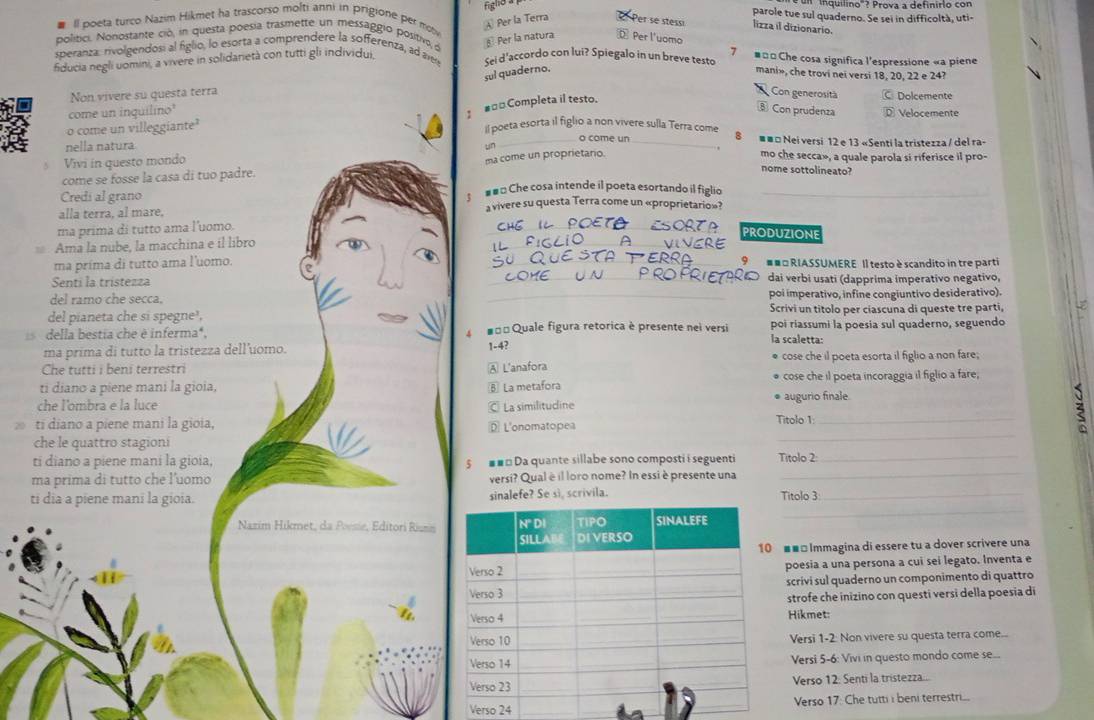 ■ Il poeta turco Nazim Hikmet ha trascorso molti anni in prigione per motivi
politici. Nonostante ciò, in questa poesia trasmette un messaggio positivo, di
speranza: rivolgendosi al figlio, lo esorta a comprendere la sofferenza, ad avere
fiducia negli uomini, a vivere in solidarietà con tutti gli individui.
Non vivere su questa terra
come un inquilino¹
o come un villeggiante²
nella natura.
5 Vivi in questo mondo
come se fosse la casa di tuo padre.
Credi al grano
alla terra, al mare,
ma prima di tutto ama l'uomo.
10 Ama la nube, la macchina e il libro
ma prima di tutto ama l'uomo.
Senti la tristezza
del ramo che secca,
del pianeta che si spegne³,
15 della bestia che è inferma⁴,
ma prima di tutto la tristezza dell'uomo.
Che tutti i beni terrestri
ti diano a piene mani la gioia,
che l'ombra e la luce
20 ti diano a piene mani la gioia,
che le quattro stagioni
ti diano a piene mani la gioia,
ma prima di tutto che l'uomo
ti dia a piene mani la gioia.
Nazim Hikmet, da Poesie, Editori Riuniti
figlio a
A Per la Terra
C Per se stessi
B Per la natura
D Per l'uomo
Sei d'accordo con lui? Spiegalo in un breve testo
sul quaderno.
2 ■□□ Completa il testo.
Il poeta esorta il figlio a non vivere sulla Terra come
un ______ o come un ______,
ma come un proprietario.
3 ■■□ Che cosa intende il poeta esortando il figlio
a vivere su questa Terra come un «proprietario»?
CHE IL POETA ESORTA
IL FIGLIO A VIVERE
SU QUESTA TERRA
COME UN PROPRIETARIO
4 ■□□ Quale figura retorica è presente nei versi
1-4?
A L'anafora
B La metafora
C La similitudine
D L'onomatopea
5 ■■□ Da quante sillabe sono composti i seguenti
versi? Qual è il loro nome? In essi è presente una
sinalefe? Se sì, scrivila.
N° DI SILLABE TIPO DI VERSO SINALEFE
Verso 2
Verso 3
Verso 4
Verso 10
Verso 14
Verso 23
Verso 24
un "inquilino"? Prova a definirlo con
parole tue sul quaderno. Se sei in difficoltà, uti-
lizza il dizionario.
7 ■□□ Che cosa significa l'espressione «a piene
mani», che trovi nei versi 18, 20, 22 e 24?
A Con generosità
C Dolcemente
B Con prudenza
D Velocemente
8 ■■□ Nei versi 12 e 13 «Senti la tristezza / del ra-
mo che secca», a quale parola si riferisce il pro-
nome sottolineato?
PRODUZIONE
9 ■■□ RIASSUMERE Il testo è scandito in tre parti
dai verbi usati (dapprima imperativo negativo,
poi imperativo, infine congiuntivo desiderativo).
Scrivi un titolo per ciascuna di queste tre parti,
poi riassumi la poesia sul quaderno, seguendo
la scaletta:
• cose che il poeta esorta il figlio a non fare;
• cose che il poeta incoraggia il figlio a fare;
• augurio finale.
Titolo 1:
Titolo 2:
Titolo 3:
10 ■■□ Immagina di essere tu a dover scrivere una
poesia a una persona a cui sei legato. Inventa e
scrivi sul quaderno un componimento di quattro
strofe che inizino con questi versi della poesia di
Hikmet:
Versi 1-2: Non vivere su questa terra come...
Versi 5-6: Vivi in questo mondo come se...
Verso 12: Senti la tristezza...
Verso 17: Che tutti i beni terrestri...